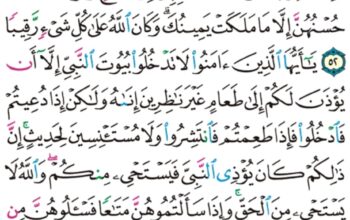 حُسْنُهُنَّ إِلَّا مَا مَلَكَتْ يَمِينُكَ وَكَانَ ٱللَّهُ عَلَىٰ كُلِّ شَىْءٍ رَّقِيبًا
٥٢ يَـٰٓأَيُّهَا ٱلَّذِينَ ءَامَنُوا۟ لَا تَدْخُلُوا۟ بُيُوتَ ٱلنَّبِىِّ إِلَّآ أَن
يُؤْذَنَ لَكُمْ إِلَىٰ طَعَامٍ غَيْرَ نَـٰظِرِينَ إِنَىٰهُ وَلَـٰكِنْ إِذَا دُعِيتُمْ
فَٱدْخُلُوا۟ فَإِذَا طَعِمْتُمْ فَٱنتَشِرُوا۟ وَلَا مُسْتَـْٔنِسِينَ لِحَدِيثٍ ۚ إِنَّ
ذَٰلِكُمْ كَانَ يُؤْذِى ٱلنَّبِىَّ فَيَسْتَحْىِۦ مِنكُمْ ۖ وَٱللَّهُ لَا
يَسْتَحْىِۦ مِنَ ٱلْحَقِّ ۚ وَإِذَا سَأَلْتُمُوهُنَّ مَتَـٰعًا فَسْـَٔلُوهُنَّ مِن